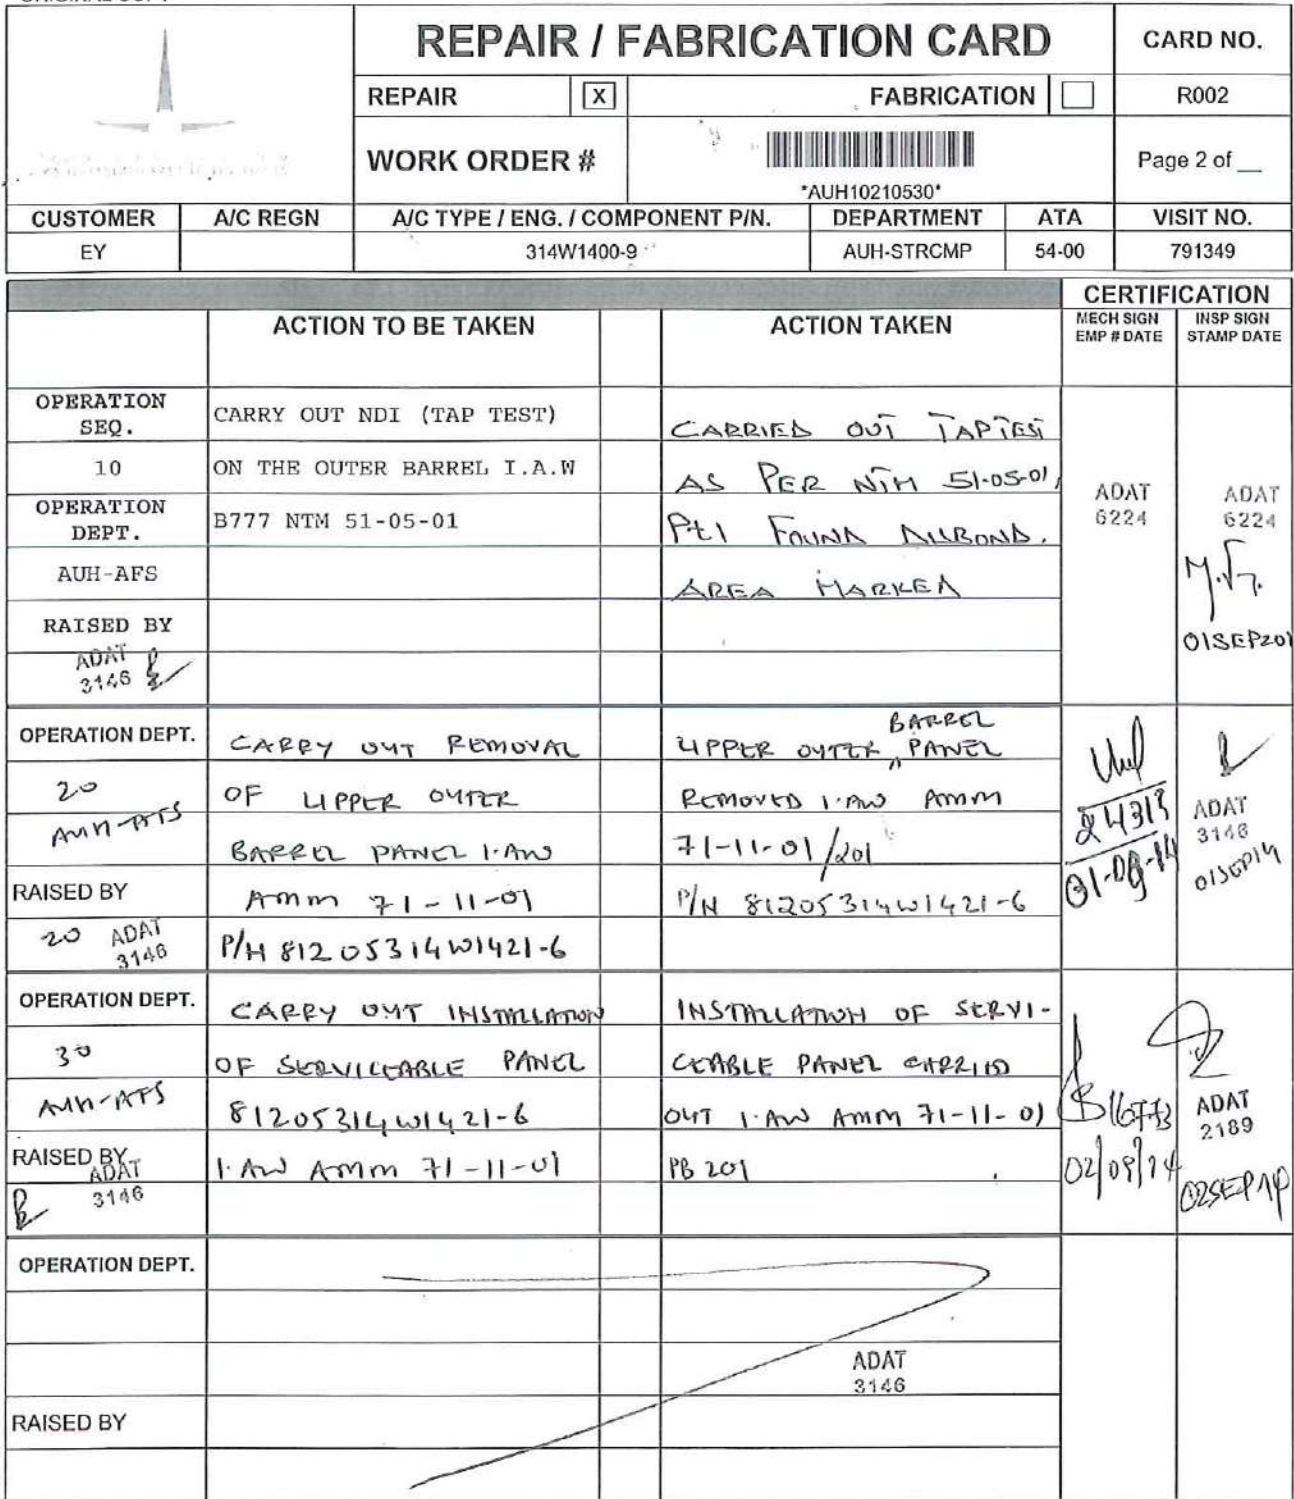 REPAIR / FABRICATION CARD
CARD NO.
REPAIR X FABRICATION R002
WORK ORDER #
*AUH10210530*
Page 2 of __
CUSTOMER A/C REGN A/C TYPE / ENG. / COMPONENT P/N. DEPARTMENT ATA VISIT NO.
EY 314W1400-9 AUH-STRCMP 54-00 791349
CERTIFICATION
ACTION TO BE TAKEN ACTION TAKEN MECH SIGN EMP # DATE INSP SIGN STAMP DATE
OPERATION SEQ.
10
OPERATION DEPT.
AUH-AFS
RAISED BY
ADAT 3146
CARRY OUT NDI (TAP TEST)
ON THE OUTER BARREL I.A.W
B777 NTM 51-05-01
CARRIED OUT TAP TEST
AS PER NTM 51-05-01,
FOUND DISBOND.
AREA MARKED
ADAT 6224
ADAT 6224
01SEP201
OPERATION DEPT.
20
RAISED BY
20 ADAT 3146
CARRY OUT REMOVAL
OF UPPER OUTER
BARREL PANEL I.AW
AMM 71-11-01
P/N 81205314W1421-6
UPPER OUTER BARREL PANEL
REMOVED I.AW AMM
71-11-01/201
P/N 81205314W1421-6
24313
01-09-14
ADAT 3146
01SEP14
OPERATION DEPT.
30
RAISED BY
ADAT 3146
CARRY OUT INSTALLATION
OF SERVICEABLE PANEL
81205314W1421-6
I.AW AMM 71-11-01
INSTALLATION OF SERVI-
CEABLE PANEL CARRIED
OUT I.AW AMM 71-11-01
PB 201
02/09/14
ADAT 2189
02SEP14
OPERATION DEPT.
RAISED BY
ADAT 3146